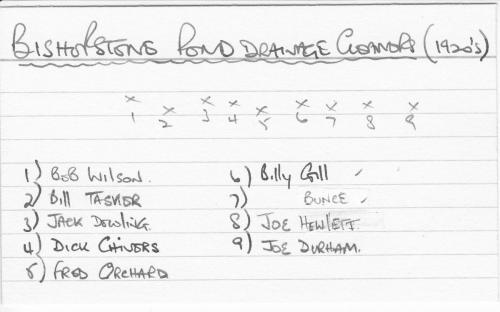 BISHOPSTONE POND DRAINAGE CLEANERS (1920's)
x x x x x x x x x
1 2 3 4 5 6 7 8 9
1) BOB WILSON.
2) Bill TASKER
3) JACK DOWLING.
4) DICK CHIVERS
5) FRED ORCHARD
6) Billy Gill ✓
7) BUNCE ✓
8) JOE HEWLETT.
9) JOE DURHAM.